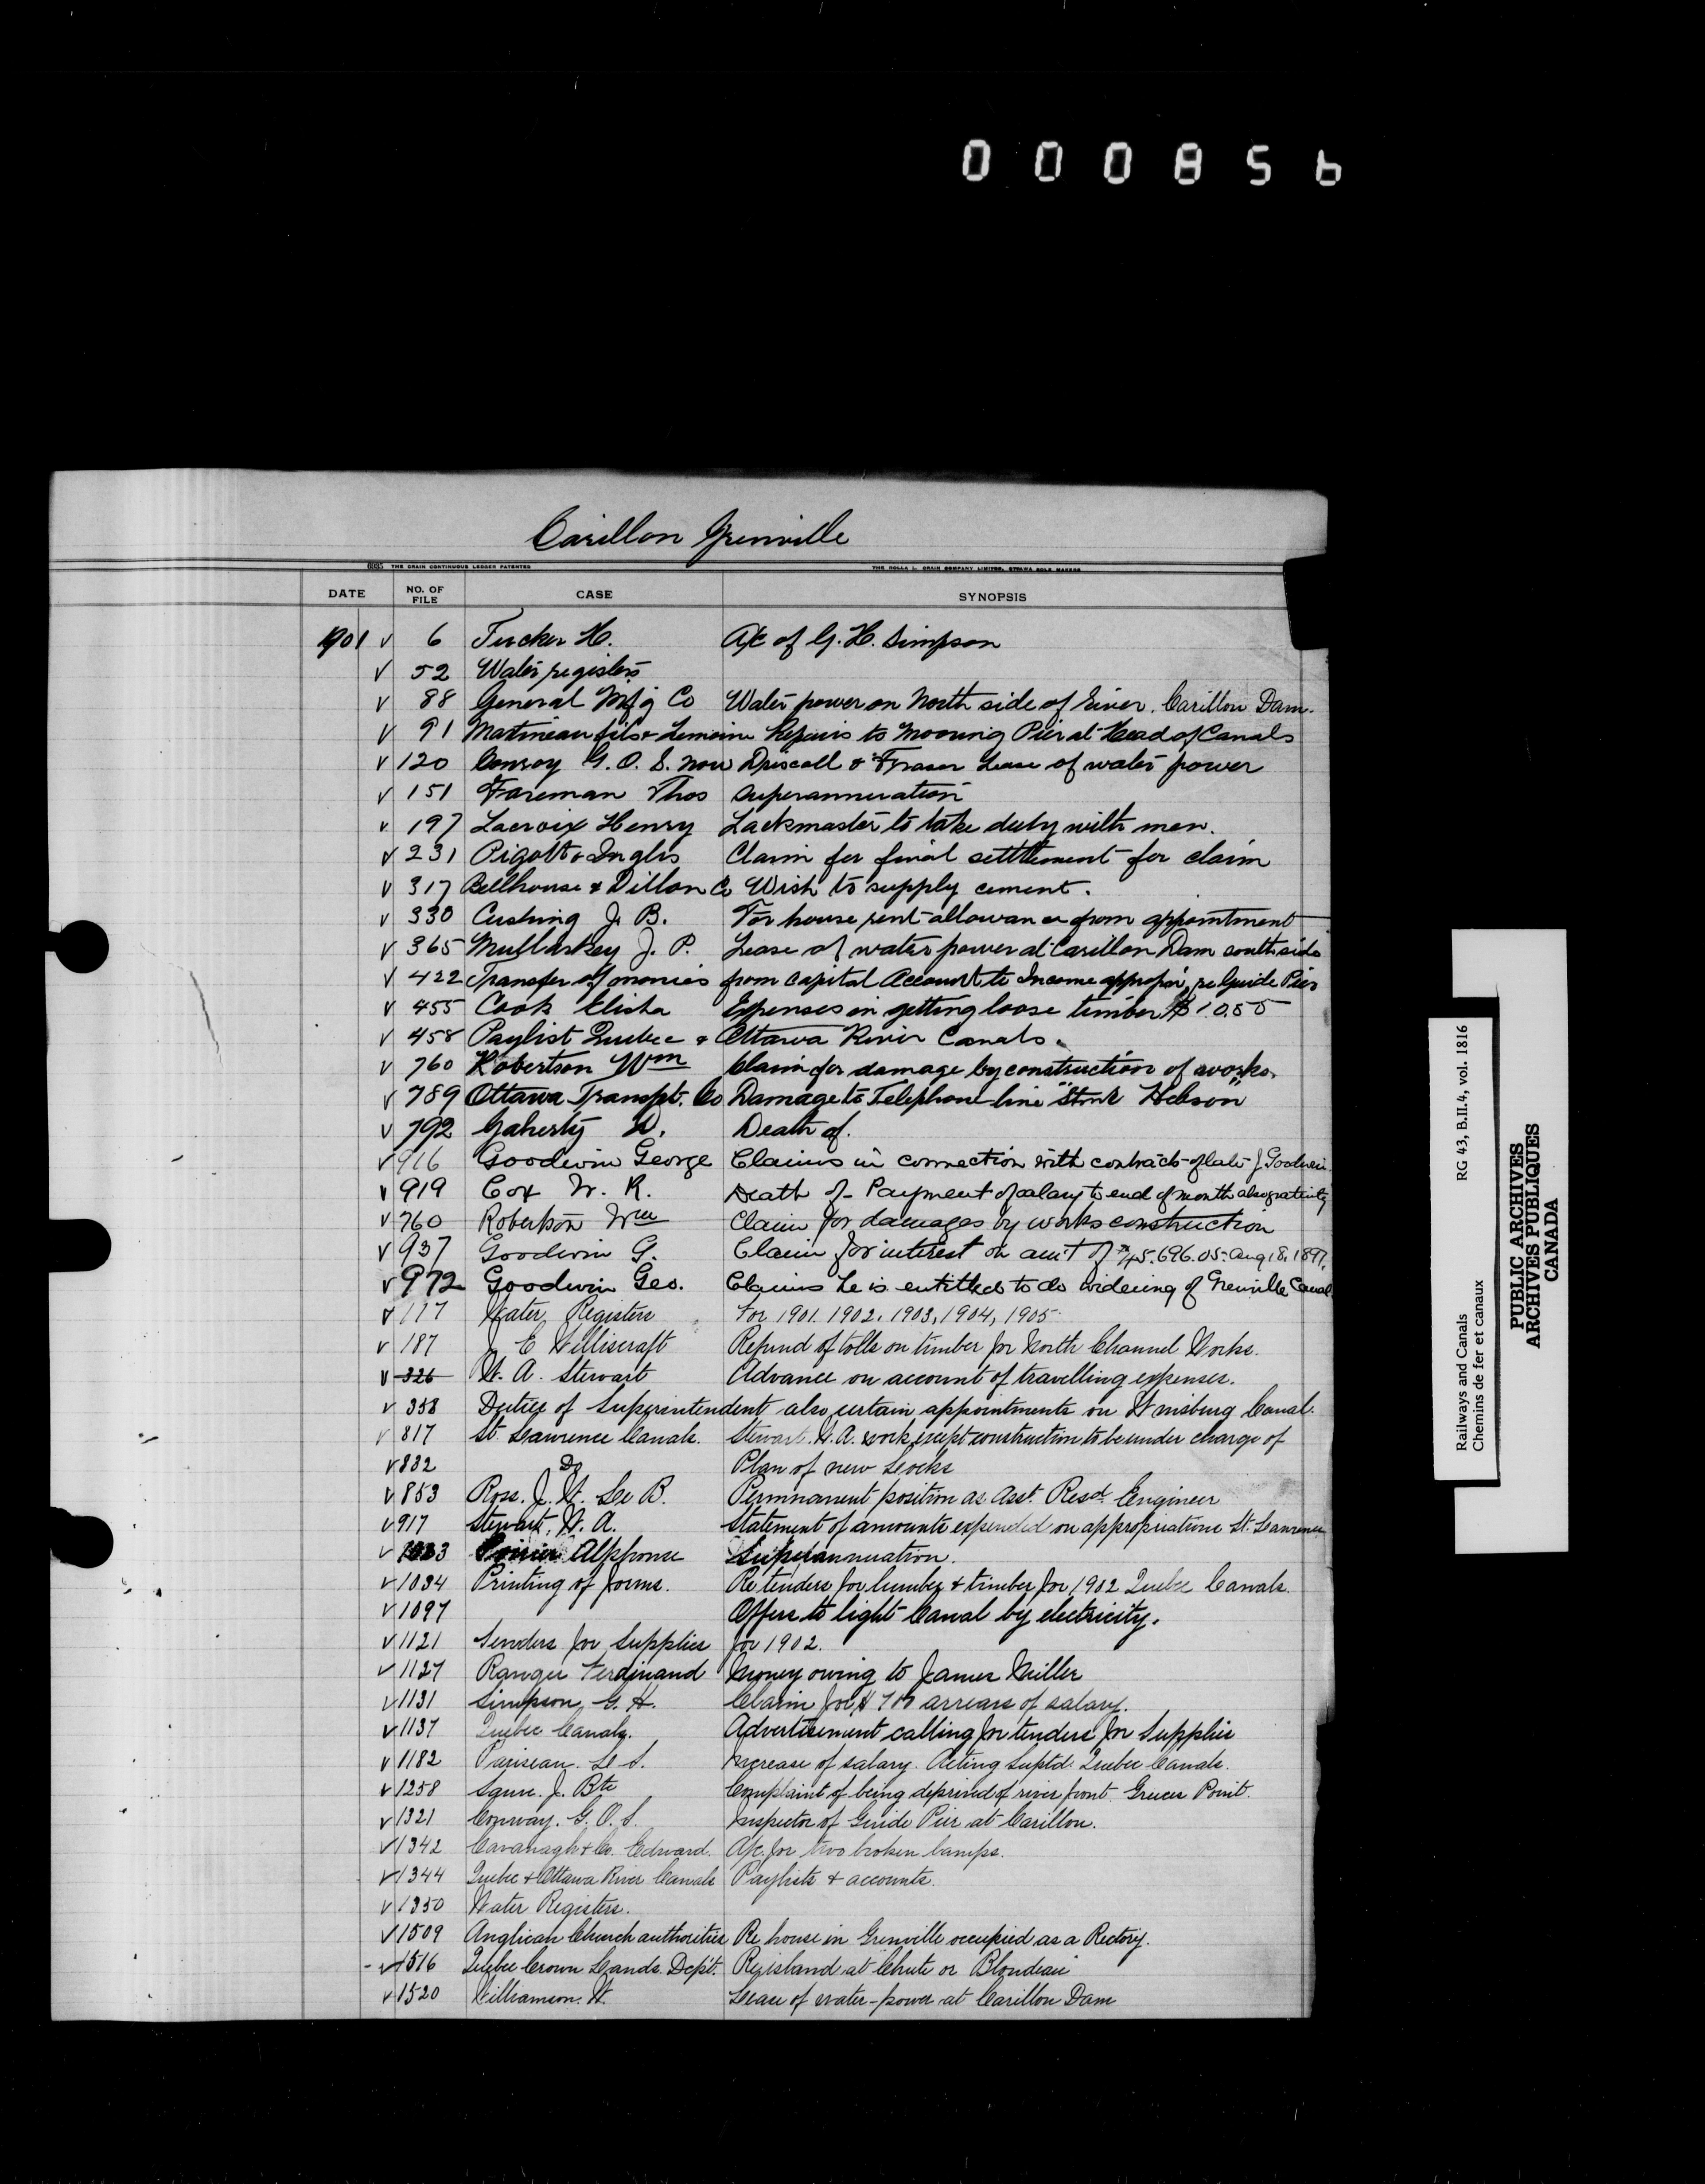 000856
Carillon Grenville
6035 THE CRAIN CONTINUOUS LEDGER PATENTED THE ROLLA L. CRAIN COMPANY LIMITED, OTTAWA SOLE MAKERS
DATE NO. OF FILE CASE SYNOPSIS
1901 v 6 Tucker H. A/c of G. H. Simpson
v 52 Water registers
v 88 General Mfg Co Water power on North side of river. Carillon Dam.
v 91 Martineau fils & Lemoine Repairs to Mooring Pier at Head of Canals
v 120 Conroy G. O. S. now Driscoll & Fraser Lease of water power
v 151 Foreman Thos Superannuation
v 197 Lacroix Henry Lockmaster to take duty with men.
v 231 Pigott & Inglis Claim for final setttlement for claim
v 317 Bellhouse & Dillon Co Wish to supply cement.
v 330 Cushing J. B. For house rent allowance from appointment
v 365 Mullarkey J. P. Lease of water power at Carillon Dam south side
v 422 Transfer of monies from Capital Account to Income appropn, re Guide Pier
v 455 Cook Elisha Expenses in getting loose timber $10.50
v 458 Paylist Quebec & Ottawa River Canals.
v 760 Robertson Wm Claim for damage by construction of works.
v 789 Ottawa Transpt. Co Damage to Telephone line "Str Hebson"
v 792 Gaherty D. Death of.
v 916 Goodwin George Claims in connection with contracts of late J Goodwin
v 919 Cox W. R. Death of - Payment of salary to end of month also gratuity
v 760 Robertson Wm Claim for damages by works construction
v 937 Goodwin G. Claim for interest on am't of $45.696.05 - Aug 18, 1897.
v 972 Goodwin Geo. Claims he is entitled to do widening of Grenville Canal.
v 117 Water Registers For 1901. 1902. 1903, 1904, 1905.
v 187 J. E Williscraft Refund of tolls on timber for North Channel Works.
v 326 W. A. Stewart Advance on account of travelling expenses.
v 358 Duties of Superintendent also certain appointments on Wmsburg Canal.
v 817 St. Lawrence Canals. Stewart. W. A. work except construction to be under charge of
v 832 Do Plan of new Locks
v 853 Ross. J. W. Le B. Permnanent position as Asst. Resd. Engineer
v 917 Stewart, W. A. Statement of amounts expended on appropriations St. Lawrence
v 1033 Poirier Alphonse Superannuation.
v 1034 Printing of forms. Re tenders for lumber & timber for 1902 Quebec Canals.
v 1097 Offers to light Canal by electricity.
v 1121 Tenders for Supplies for 1902.
v 1127 Ranger Ferdinand Money owing to James Miller
v 1131 Simpson, G. H. Claim for $700 arrears of salary.
v 1137 Quebec Canals. Advertisement calling for tenders for Supplies
v 1182 Pariseau. Le S. Increase of salary. Acting Suptd. Quebec Canals.
v 1258 Sauve. J. Bte Complaint of being deprived of river front. Greece Point.
v 1321 Conway. G. O. S. Inspector of Guide Pier at Carillon.
v 1342 Cavanagh & Co. Edward. A/c. for two broken lamps.
v 1344 Quebec & Ottawa River Canals Paylists & accounts.
v 1350 Water Registers.
v 1509 Anglican Church authorities Re house in Grenville occupied as a Rectory.
- v 1516 Quebec Crown Lands. Dep't. Re island at Chute or Blondeau
v 1520 Williamson. W. Lease of water-power at Carillon Dam
Railways and Canals RG 43, B.II.4, vol. 1816
Chemins de fer et canaux
PUBLIC ARCHIVES
ARCHIVES PUBLIQUES
CANADA